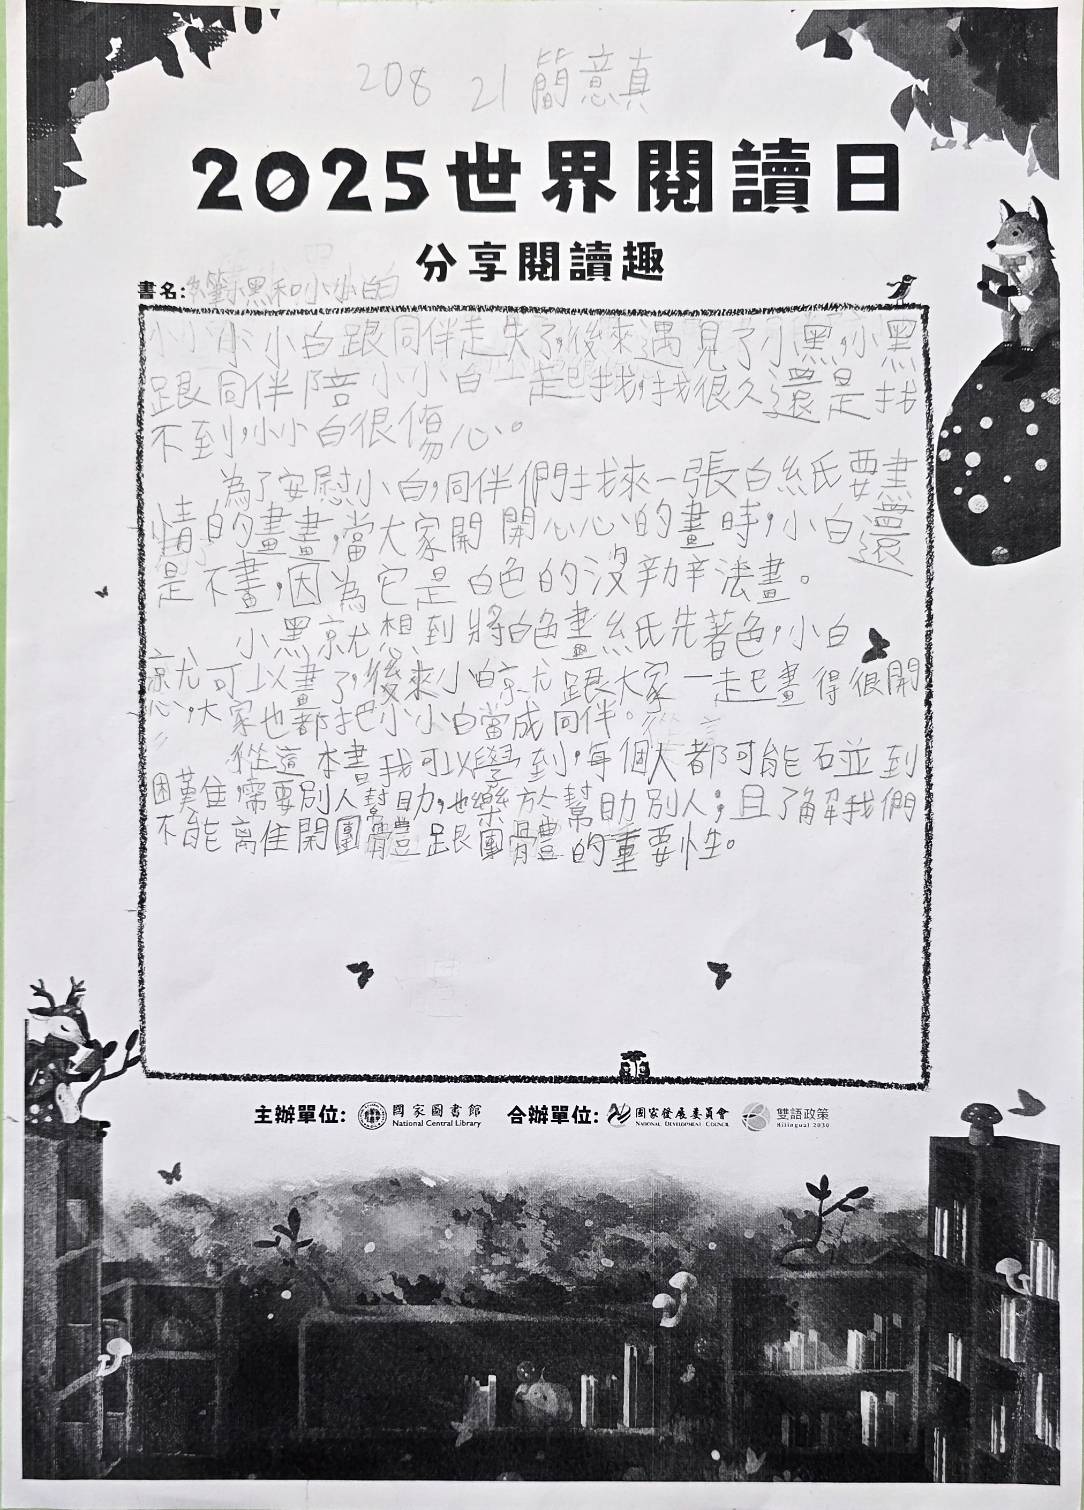 208 21 簡意真
2025世界閱讀日
分享閱讀趣
書名:小黑和小小白
小小白跟同伴走失了,後來遇見了小黑,小黑
跟同伴陪小小白一起找,找很久還是找
不到,小小白很傷心。
為了安慰小白,同伴們找來一張白紙要盡
情的畫畫,當大家開開心心的畫時,小白還
是不畫,因為它是白色的沒辦法畫。
小黑就想到將白色畫紙先著色,小白
就可以畫了,後來小白就跟大家一起畫得很開
心,大家也都把小小白當成同伴。
從這本書我可以學到,每個人都可能碰到
困難,需要別人幫助,也樂於幫助別人;且了解我們
不能離開團體跟團體的重要性。
主辦單位: 國家圖書館 合辦單位: 國家發展委員會 雙語政策
National Central Library NATIONAL DEVELOPMENT COUNCIL Bilingual 2030